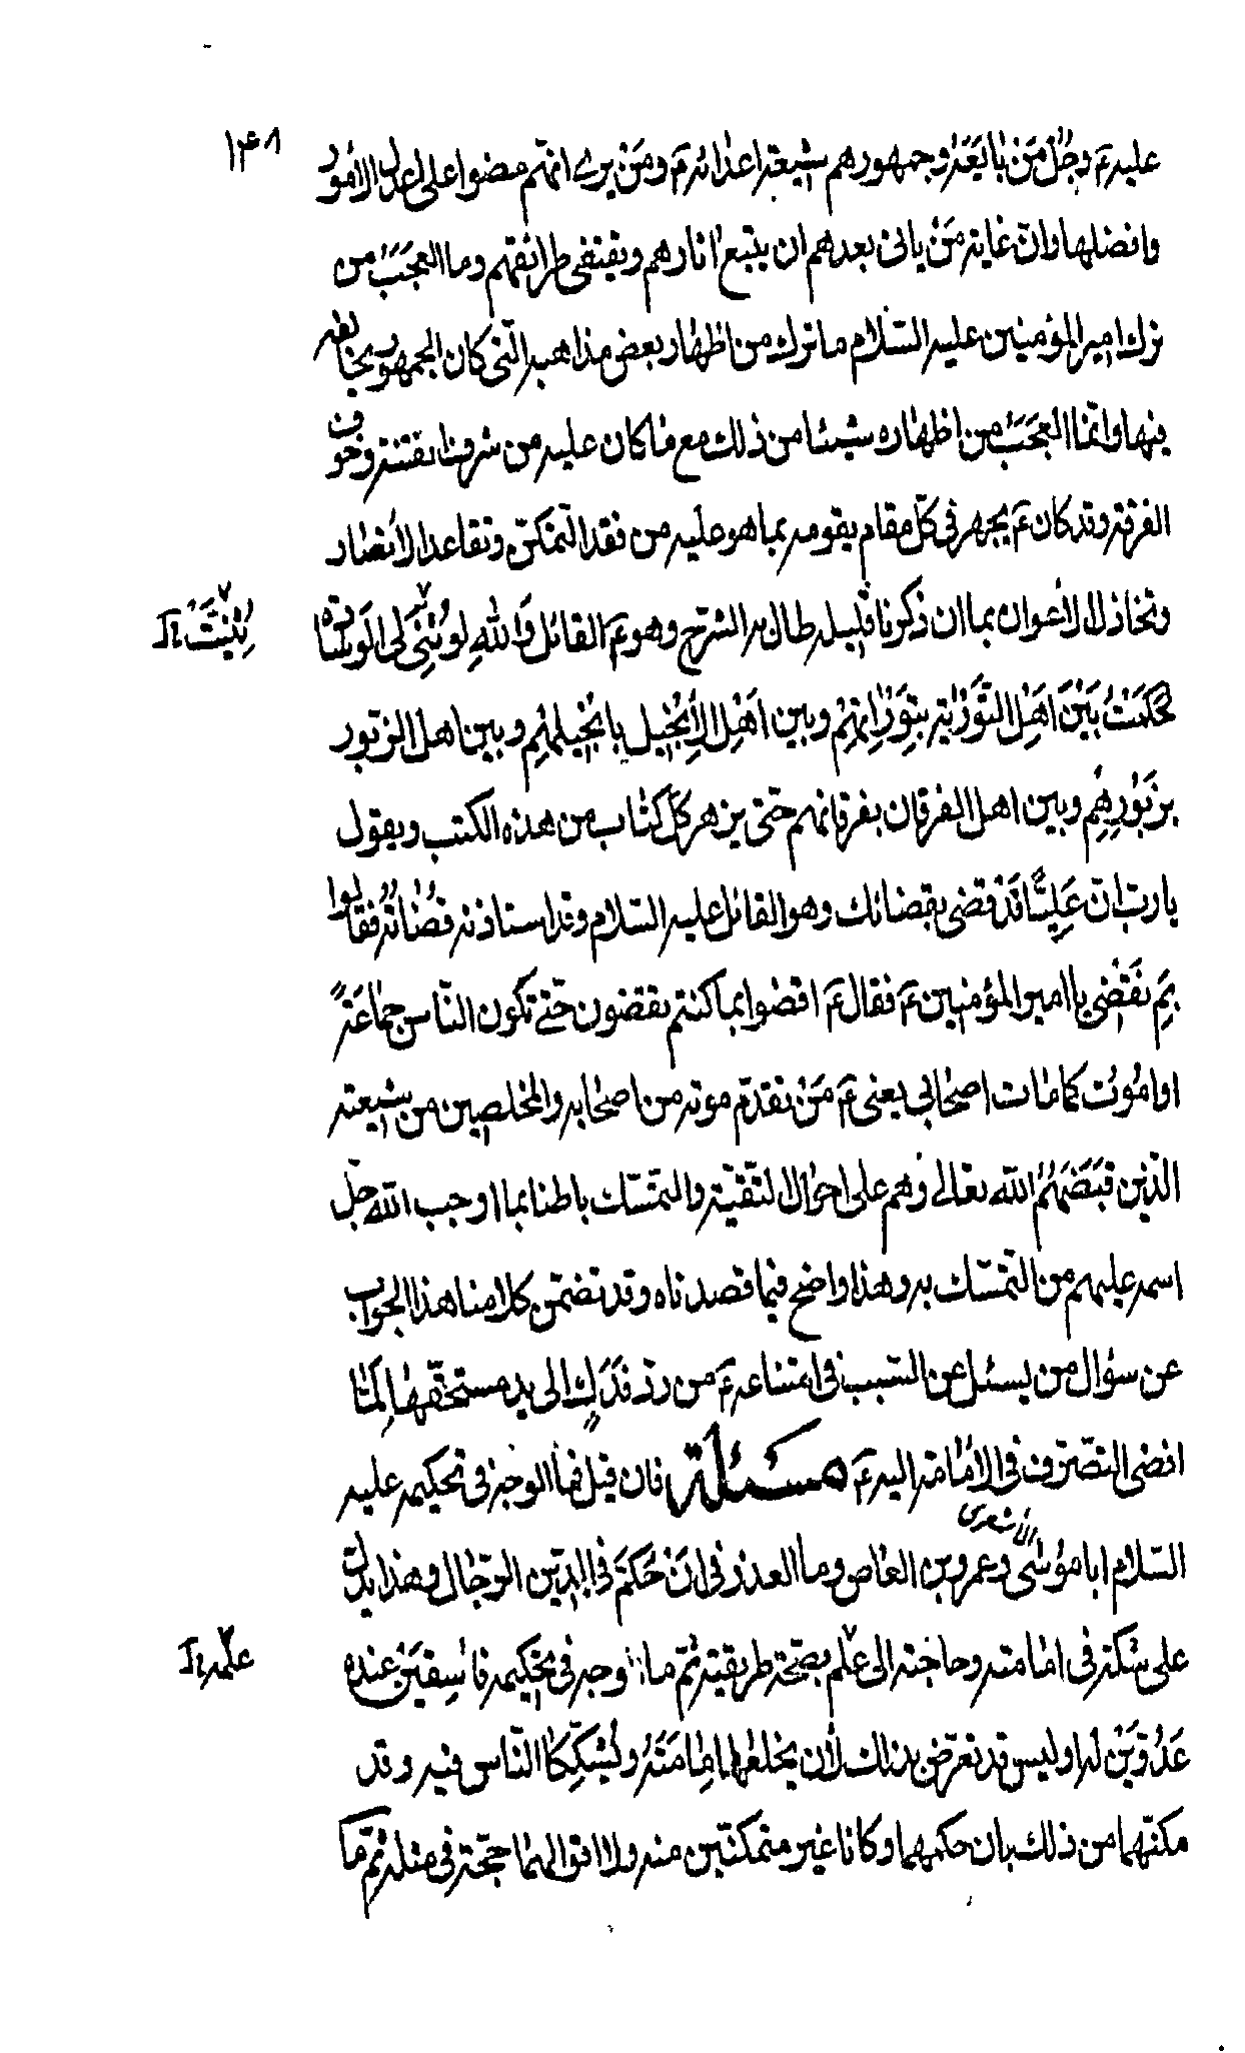 ١٤٨
عليه ع وجُلّ مَن بٰايَعَهُ وجمهورهم شيعة اعدائه ع ومَن يرى انّهم مضوا على اعدل الامور
وافضلها وانّ غاية مَنْ ياتى بعدهم ان يتبع اثارهم ويقتفى طرائقهم وما العجَبُ من
ترك امير المؤمنين عليه السّلام ما ترك من اظهار بعض مذاهبه الّتى كان الجمهور يخالفه
فيها وانّما العجَبُ من اظهاره شيئا من ذلك مع ما كان عليه من شرف الفتنة وخوف
الفرقة وقد كان ع يجهر فى كلّ مقام يقومه بما هو عليه من فقد التّمكّن وتقاعد الانصار
وتخاذل الاعوان بما ان ذكرنا قليله طال به الشرح وهو ع القائل وَاللهِ لو ثُنِيَ لى الوسادة
ثُنِيَتْ
حكمتُ بَيْنَ اَهْلِ التَّوْرٰيةِ بِتَوْرٰاتِهِمْ وبين اَهْلِ الاِنْجيل بانجيلهِم وبين اهل الزّبور
بزَبُورِهِم وبين اهل الفرقان بفرقانهم حتى يزهر كلّ كتٰاب من هذه الكتب ويقول
يا ربّ انّ عَلِيّاً قَدْ قضى بقضائك وهو القائل عليه السّلام وقد استاذنه قُضٰاتُهُ فقالوا
بِمَ نَقْضِى يا امير المؤمنين ع فقال ع اقضوا بما كنتم تقضون حتّى تكون النّاس جماعَةً
او اَمُوت كما مٰات اصحٰابى يعنى ع مَنْ تقدّم موته من اصحٰابه والمخلصين من شيعته
الّذين قبَضَهُمُ الله تعالى وهم على احوال التّقيّة والتمسّك باطنا بما اوجب الله جلّ
اسمه عليهم من التّمسّك به وهذا واضح فيما قصدناه وقد تضمّن كلامنا هذا الجواب
عن سؤال من يسئل عن السّبب فى امتناعه ع من ردّ فَدَكٍ الى يد مستحقّهٰا لَمّا
افضى التصرّف فى الامٰامة اليه ع مسئلة فان قيل فما الوجه فى تحكيمه عليه
السّلام ابا موسٰى الاشعرى وعمرو بن العاص وما العذر فى انْ حَكَّمَ فى الدّين الرّجال وهذا يدل
على شكّه فى امامته وحاجته الى علم بصحّة طريقته ثمّ ما الوجه فى تحكيمه فاسِقَيْن عنده
علمه
عَدُوَّيْن له اوليس قد تعرّض بذلك لأن يخلعا امٰامَتَهُ ويُشكِّكَا النّاس فيه وقد
مكنّهما من ذلك بان حكّمهما وكانا غير متمكنّين منه ولا اقوالهمٰا حجّة فى مثله ثمّ مٰا